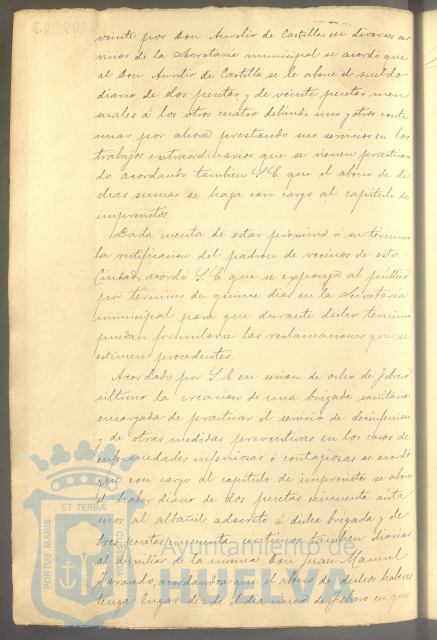 veinte por Don Aurelio de Castillas en diversos ser
vicios de la Secretaría municipal se acordó que
al Don Aurelio de Castilla se le abone el sueldo
diario de dos pesetas y de veinte pesetas men
suales á los otros cuatro debiendo uno y otros conti
nuar por ahora prestando sus servicios en los
trabajos extraordinarios que se vienen practican
do acordando tambien S.E. que el abono de di
chas sumas se haga con cargo al capítulo de
imprevistos.
Dada cuenta de estar próximo á su término
la rectificacion del padron de vecinos de esta
Ciudad, acordó S.E. que se exponga al público
por término de quince dias en la Secretaría
municipal para que durante dicho término
puedan formularse las reclamaciones que se
estimen procedentes.
Acordado por S.E. en sesion de ocho de Febrero
último la creacion de una brigada sanitaria
encargada de practicar el servicio de desinfeccion
y de otras medidas preventivas en los casos de
enfermedades infecciosas ó contagiosas se acordó
que con cargo al capítulo de imprevistos se abone
el haber diario de dos pesetas cincuenta cénti
mos al albañil adscrito á dicha brigada y de
tres pesetas cincuenta céntimos tambien diarias
al auxiliar de la misma Don Juan Manuel
acordandose que el abono de dichos haberes
tenga lugar desde el dia nueve de Febrero en que
PORTUS MARIS
ET TERRAE
CUSTODIA
Ayuntamiento de
HUELVA